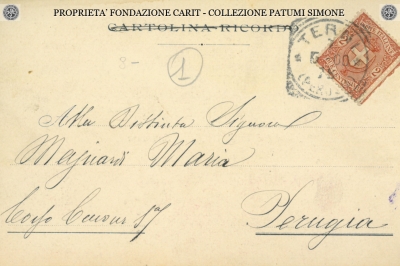 PROPRIETA' FONDAZIONE CARIT - COLLEZIONE PATUMI SIMONE
CARTOLINA-RICORDO
TERNI
(PERUGIA)
2
1
Alla Distinta Signora
Magnardi Maria
Corso Cavour 57
Perugia